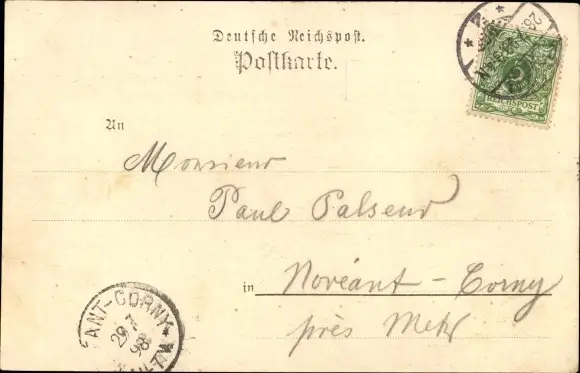 Deutsche Reichspost.
Postkarte.
REICHSPOST
An
Monsieur
Paul Palseur
in Novéant - Corny
près Metz
ANT-CORNY
29
7
98